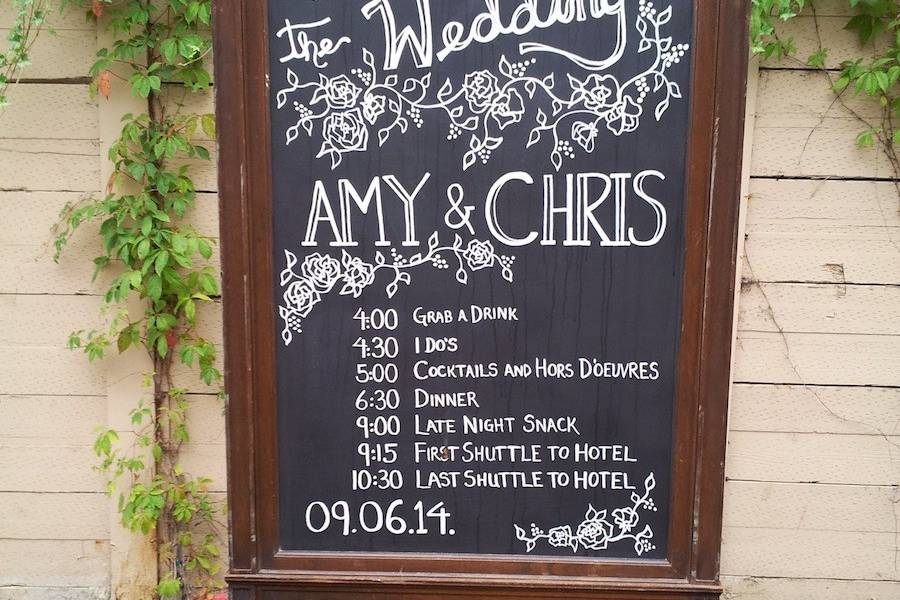 the Wedding
AMY & CHRIS
4:00 GRAB A DRINK
4:30 I DO'S
5:00 COCKTAILS AND HORS D'OEUVRES
6:30 DINNER
9:00 LATE NIGHT SNACK
9:15 FIRST SHUTTLE TO HOTEL
10:30 LAST SHUTTLE TO HOTEL
09.06.14.